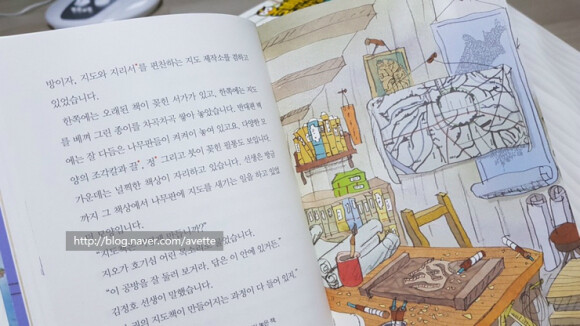 방이자, 지도와 지리서*를 편찬하는 지도 제작소를 겸하고
있었습니다.
한쪽에는 오래된 책이 꽂힌 서가가 있고, 한쪽에는 지도
를 베껴 그린 종이를 차곡차곡 쌓아 놓았습니다. 한편
에는 잘 다듬은 나무판들이 켜켜이 놓여 있고요, 다양한 모
양의 조각칼과 끌*, 정* 그리고 붓이 꽂힌 필통도 보입니다.
가운데는 널찍한 책상이 자리하고 있습니다. 선생은 방금
까지 그 책상에서 나무판에 지도를 새기는 일을 하고 있었
http://blog.naver.com/avette
지오가 호기심 어린
"이 공방을 잘 둘러 보거라. 답은 이 안에 있거든."
김정호 선생이 말했습니다.
지도책이 만들어지는 과정이 다 들어 있지."